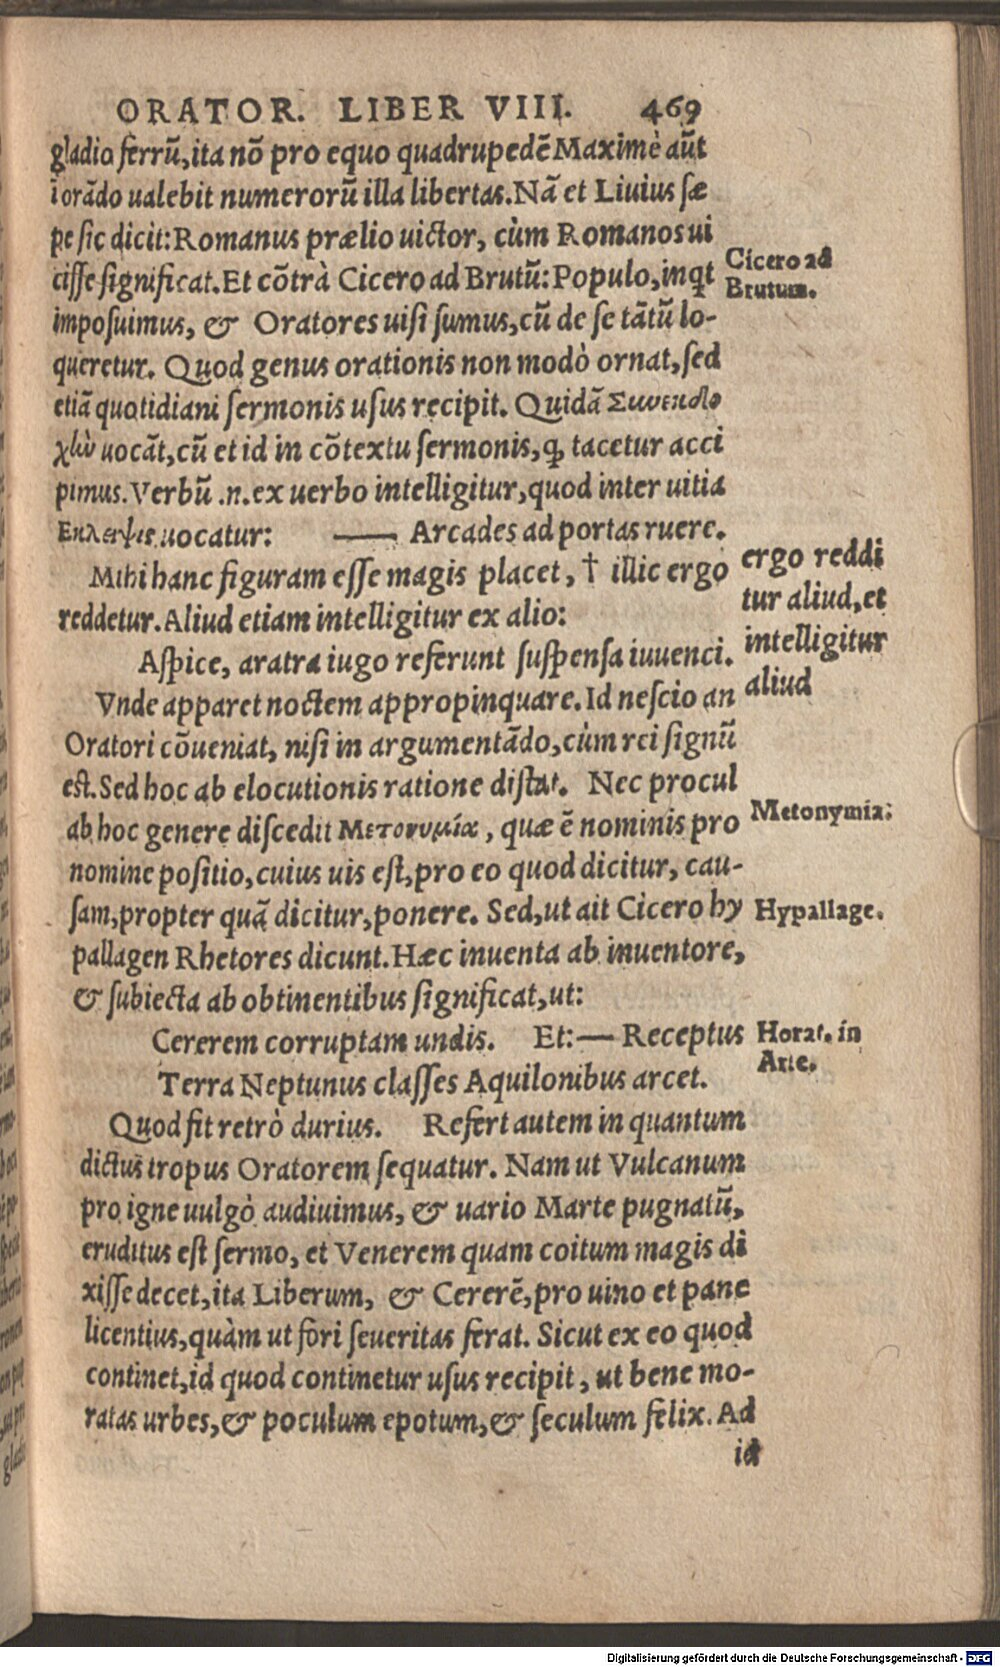 ORATOR. LIBER VIII. 469
gladio ferrū, ita nō pro equo quadrupedē Maximè aūt
ī orādo ualebit numerorū illa libertas. Nā et Liuius sæ
pe sic dicit: Romanus prælio uictor, cùm Romanos ui
cisse significat. Et cōtrà Cicero ad Brutū: Populo, inqt
imposuimus, & Oratores uisi sumus, cū de se tātū lo-
queretur. Quod genus orationis non modò ornat, sed
etiā quotidiani sermonis usus recipit. Quidā Συνεκδο
χὴν uocāt, cū et id in cōtextu sermonis, ꝙ tacetur acci
pimus. Verbū .n. ex uerbo intelligitur, quod inter uitia
Εκλειψις uocatur: —— Arcades ad portas ruere.
Mihi hanc figuram esse magis placet, † illic ergo
reddetur. Aliud etiam intelligitur ex alio:
Aspice, aratra iugo referunt suspensa iuuenci.
Vnde apparet noctem appropinquare. Id nescio an
Oratori cōueniat, nisi in argumentādo, cùm rei signū
est. Sed hoc ab elocutionis ratione distat. Nec procul
ab hoc genere discedit Μετονυμία, quæ ē nominis pro
nomine positio, cuius uis est, pro eo quod dicitur, cau-
sam, propter quā dicitur, ponere. Sed, ut ait Cicero hy
pallagen Rhetores dicunt. Hæc inuenta ab inuentore,
& subiecta ab obtinentibus significat, ut:
Cererem corruptam undis. Et: — Receptus
Terra Neptunus classes Aquilonibus arcet.
Quod fit retrò durius. Refert autem in quantum
dictus tropus Oratorem sequatur. Nam ut Vulcanum
pro igne uulgò audiuimus, & uario Marte pugnatū,
eruditus est sermo, et Venerem quam coitum magis di
xisse decet, ita Liberum, & Cererē, pro uino et pane
licentius, quàm ut fori seueritas ferat. Sicut ex eo quod
continet, id quod continetur usus recipit, ut bene mo-
ratas urbes, & poculum epotum, & seculum felix. Ad
id
Cicero ad
Brutum.
ergo reddi
tur aliud, et
intelligitur
aliud
Metonymia:
Hypallage.
Horat. in
Arte.
Digitalisierung gefördert durch die Deutsche Forschungsgemeinschaft - DFG